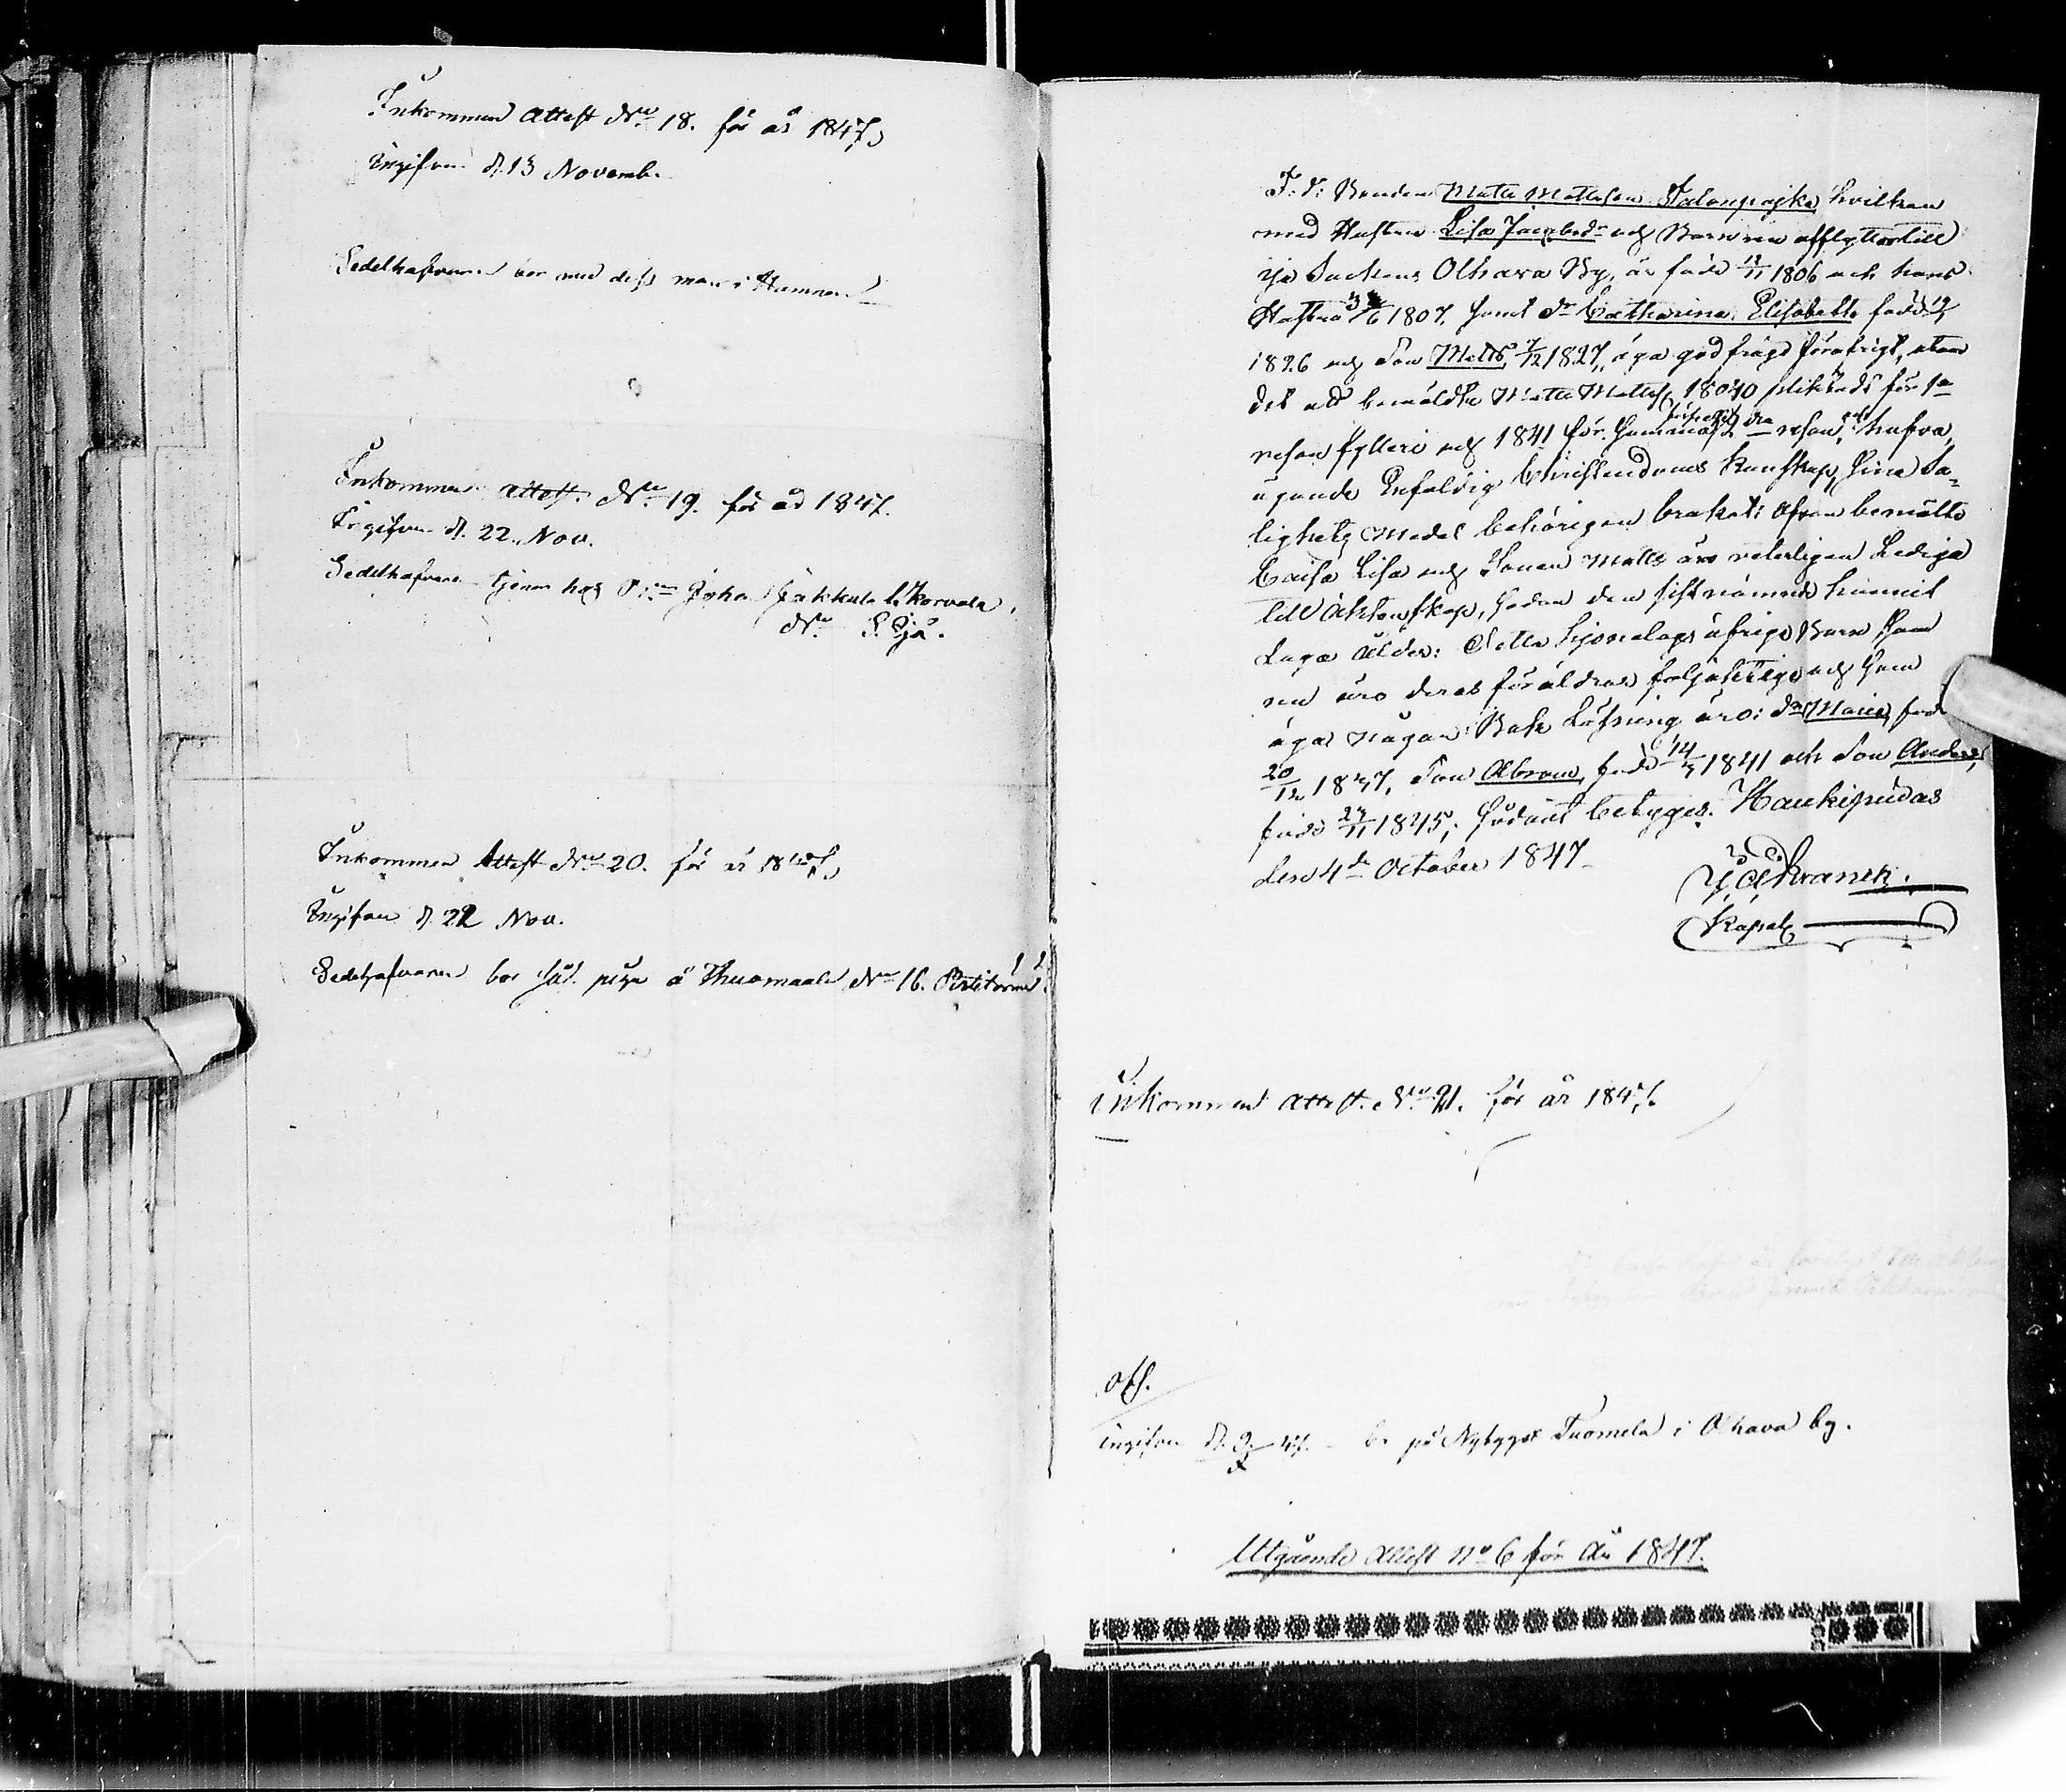 Inkommen Attest No 18. för år 1847,
Ingifven d. 13 Novemb.
Sedelhafvaren bor med dess man i Hamnen
Inkommen attest. No 19. för år 1847.
Ingifven d. 22. Nov.
Sedelhafvaren tjenar hos Joha Jakkula l. Korvala,
No S. Ijå.
Inkommen Attest No 20. för år 1847,
Ingifven d. 22 Nov.
Sedelhafvaren bor såsom piga å Thuomaala No 16.
F. d. Bonden Matts Mattsson Talonpojka, hvilken
med Hustrun Lisa Jacobsdr och Barnen afflyttar till
Ijo Sockens Olhava By, är född 12/11 1806 och hans
Hustru 1807, samt dr Catharina Elisabeth född
1826 och Son Matts 7/12 1827, äga god frägd föröfrigt, utom
det att bemäldte Matts Mattss. 1840 pliktade för 1a
resan fylleri och 1841 för samma 2dra resan, och hafva,
ägande Enfaldig Christendoms kunskap, sina Sa-
lighets Medel behörigen brukat: Ofvan bemälte
Caisa Lisa och Sonen Matts äro veterligen Lediga
till Äktenskap, sedan den sistnämnde hunnit
Laga ålder: Detta hjonelags öfriga Barn som
nu äro deras föräldrar följaktige och som
äga någon Bok Läsning äro: dr Maria, född
20/12 1837, Son Abram, född 14/3 1841 och Son Anders,
född 27/11 1845; Sådant betygas. Haukipudas
den 4de October 1847
Kapel
Inkommen attest. No 21. för år 1847.
obs.
ingifven d. 47. – bor på Nybygget Tuomela i Olhava by.
Utgående Attest No 6 för år 1847.